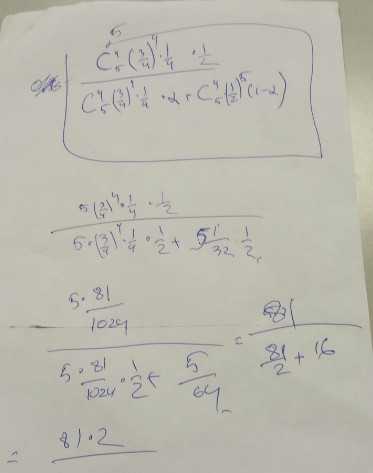 5
C₅⁴ (3/4)⁴ · 1/4 · 1/2
C₅⁴ (3/4)⁴ · 1/4 · 2 + C₅⁴ (1/2)⁵ (1-2)
5 (3/4)⁴ · 1/4 · 1/2
5 · (3/4)⁴ · 1/4 · 1/2 + 5 1/32 · 1/2
5 · 81/1024
5 · 81/1024 · 1/2 + 5/64 = 81 / (81/2 + 16)
= 81 · 2